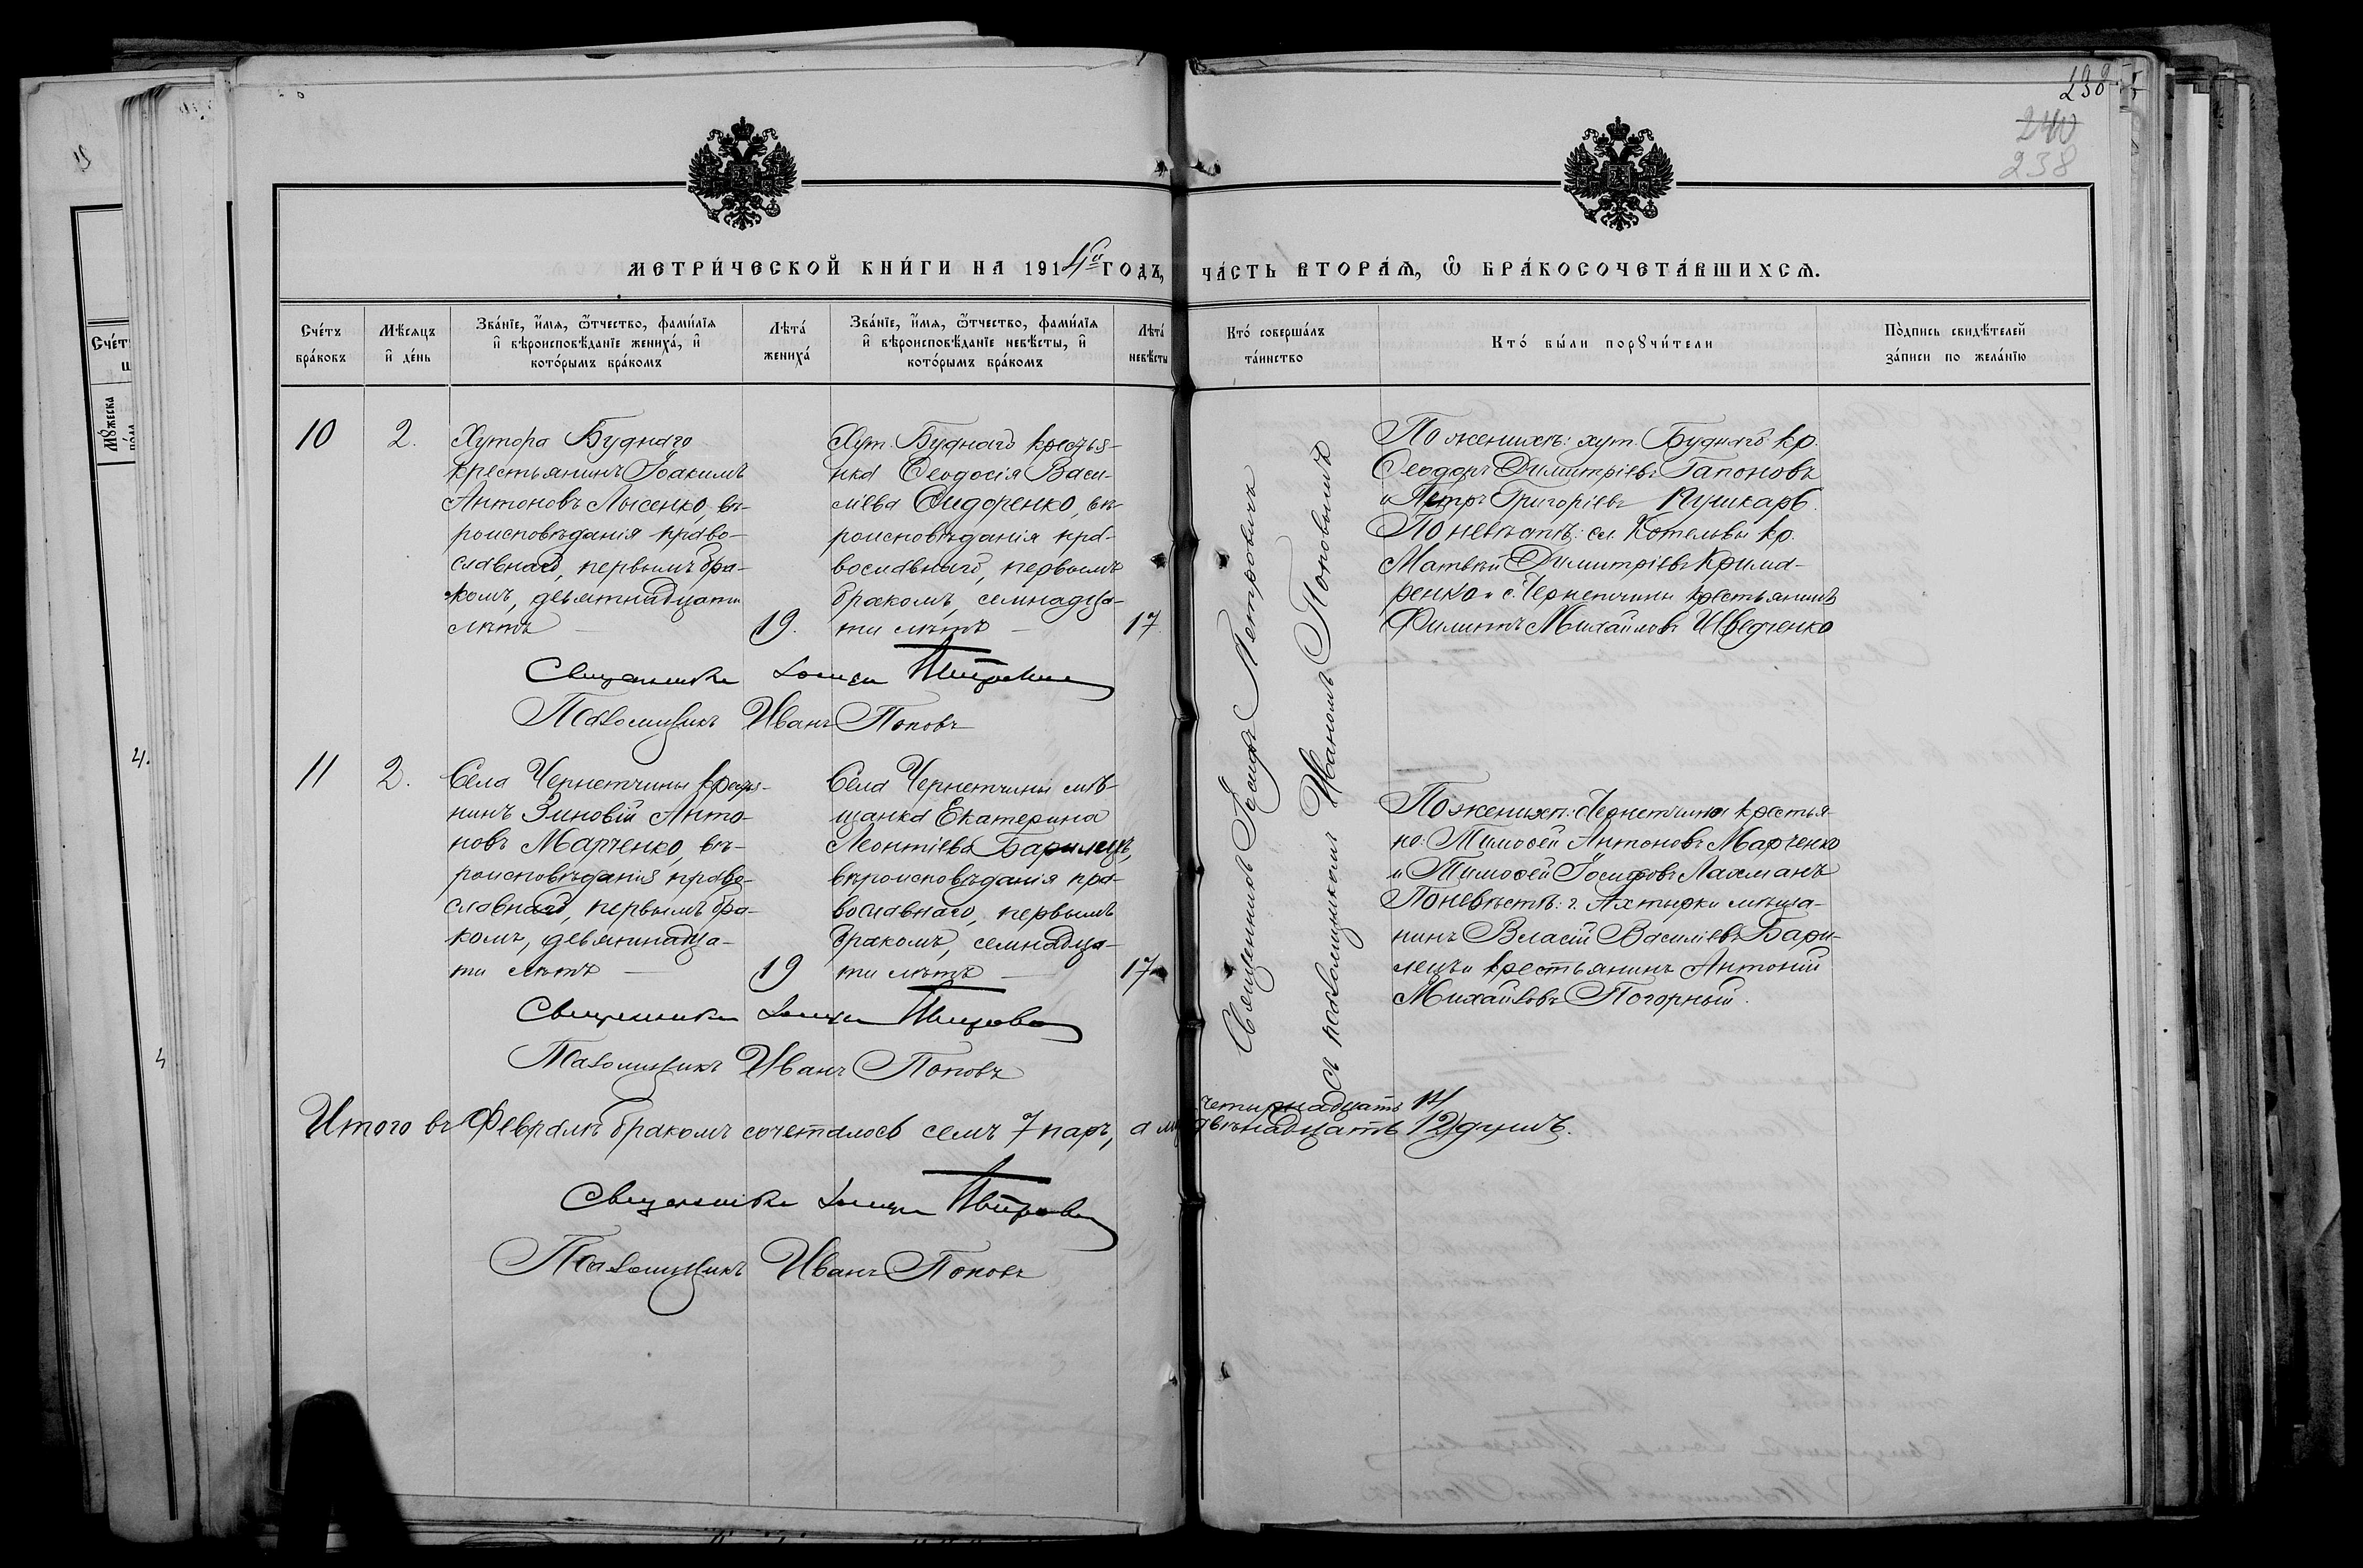 238
240
238
МЕТРИ́ЧЕСКОЙ КНИ́ГИ НА 1914й ГОДЪ, ЧА́СТЬ ВТОРА́Я, Ѽ БРАКОСОЧЕТА́ВШИХСЯ.
Сче́тъ бра́ковъ
Мѣ́сяцъ и҆ де́нь
Зва́нїе, и҆́мя, ѻ҆́тчество, фами́лїя и҆ вѣроисповѣ́данїе жениха́, и҆ кото́рымъ бра́комъ
Лѣта́ жениха́
Зва́нїе, и҆́мя, ѻ҆́тчество, фами́лїя и҆ вѣроисповѣ́данїе невѣ́сты, и҆ кото́рымъ бра́комъ
Лѣта́ невѣ́сты
Кто́ соверша́лъ та́инство
Кто́ бы́ли порꙋчи́тели
По́дпись свидѣ́телей за́писи по жела́нїю
10
2.
Хутора Буднаго
крестьянинъ Іоакимъ
Антоновъ Лысенко, вѣ-
роисповѣданія право-
славнаго, первымъ бра-
комъ, девятнадцати
лѣтъ —
19.
Хут. Буднаго крестья-
нка Ѳеодосія Васи-
ліева Сидоренко, вѣ-
роисповѣданія пра-
вославнаго, первымъ
бракомъ, семнадца-
ти лѣтъ —
17
Священникъ Іосифъ Петровичъ
съ псаломщикомъ Иваномъ Поповымъ
По женихѣ: хут. Буднаго кр.
Ѳеодоръ Димитріевъ Гапоновъ
и Петръ Григоріевъ Пушкарь.
По невѣстѣ: сл. Котельвы кр.
Матвѣй Димитріевъ Крима-
ренко и с. Чернетчины крестьянинъ
Филиппъ Михайловъ Шведченко
Священникъ Іосифъ Петровичъ
Псаломщикъ Иванъ Поповъ
11
2.
Села Чернетчины крестья-
нинъ Зиновій Анто-
новъ Марченко, вѣ-
роисповѣданія право-
славнаго, первымъ бра-
комъ, девятнадца-
ти лѣтъ —
19
Села Чернетчины мѣ-
щанка Екатерина
Леонтіева Барилецъ,
вѣроисповѣданія пра-
вославнаго, первымъ
бракомъ, семнадца-
ти лѣтъ —
17
По женихѣ: с. Чернетчины крестья-
не: Тимоѳей Антоновъ Марченко
и Тимоѳей Іосифовъ Лахманъ
По невѣстѣ: г. Ахтырки мѣща-
нинъ Власій Василіевъ Бари-
лецъ и крестьянинъ Антоній
Михайловъ Погорный.
Священникъ Іосифъ Петровичъ
Псаломщикъ Иванъ Поповъ
четырнадцать 14
Итого въ Февралѣ бракомъ сочеталось семь 7 паръ, а двѣнадцать 12 душъ.
Священникъ Іосифъ Петровичъ
Псаломщикъ Иванъ Поповъ
Счет
Мꙋжеска
4.